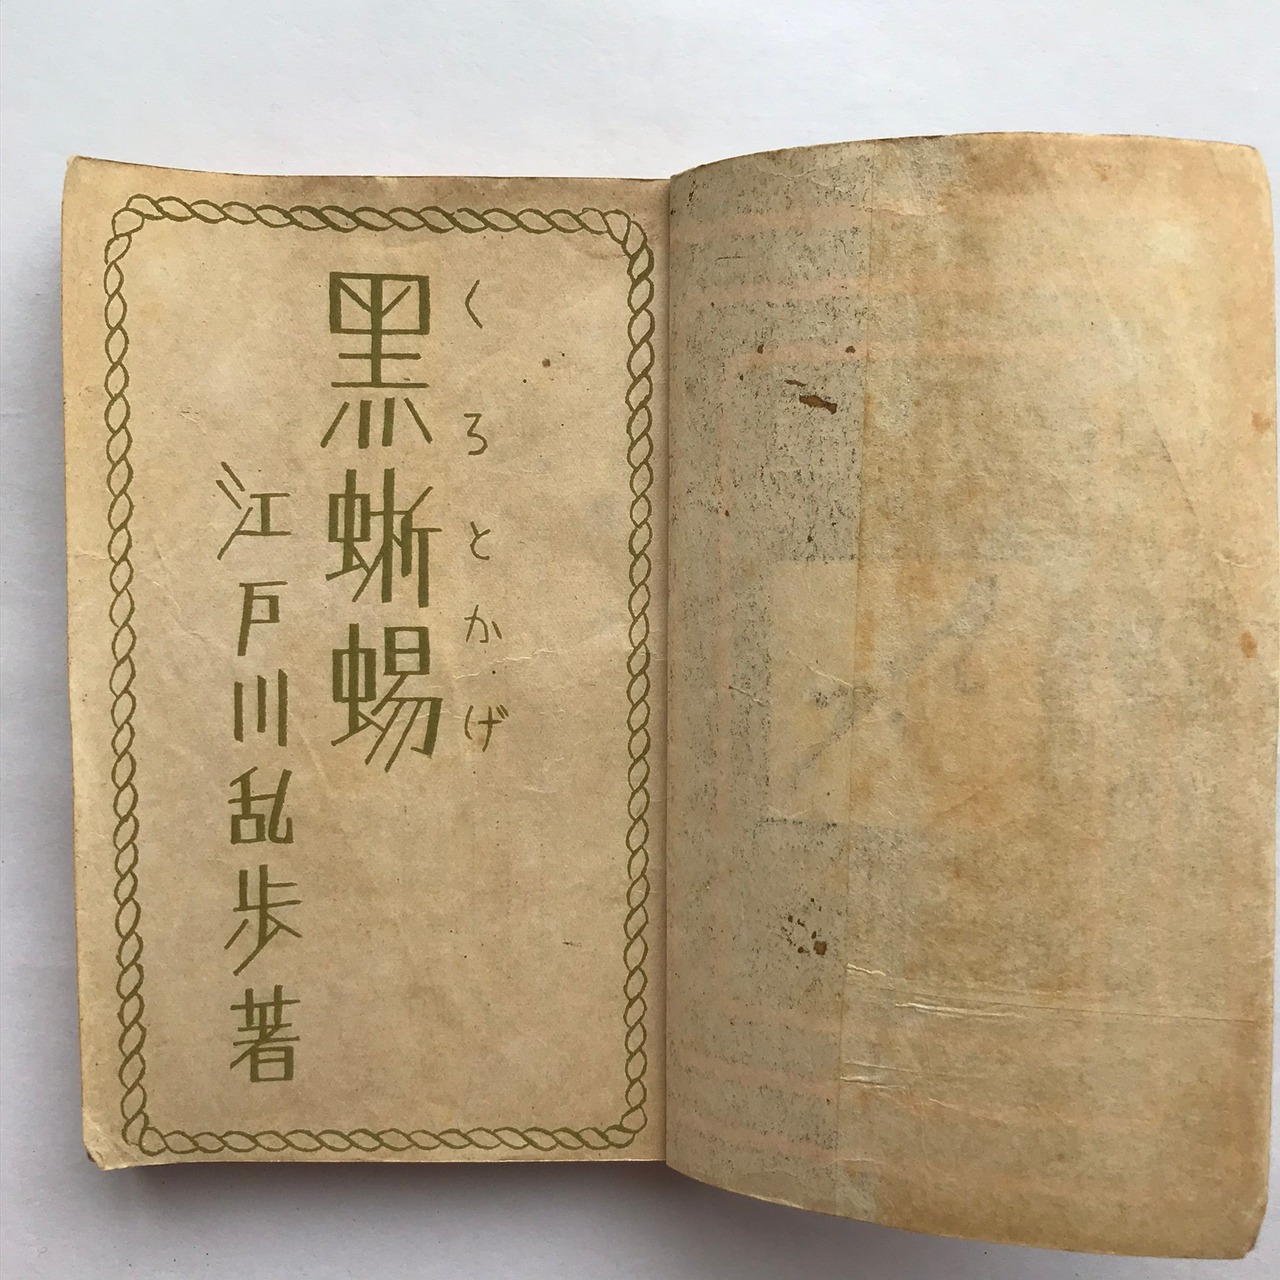 くろとかげ
黒蜥蜴
江戸川乱歩著